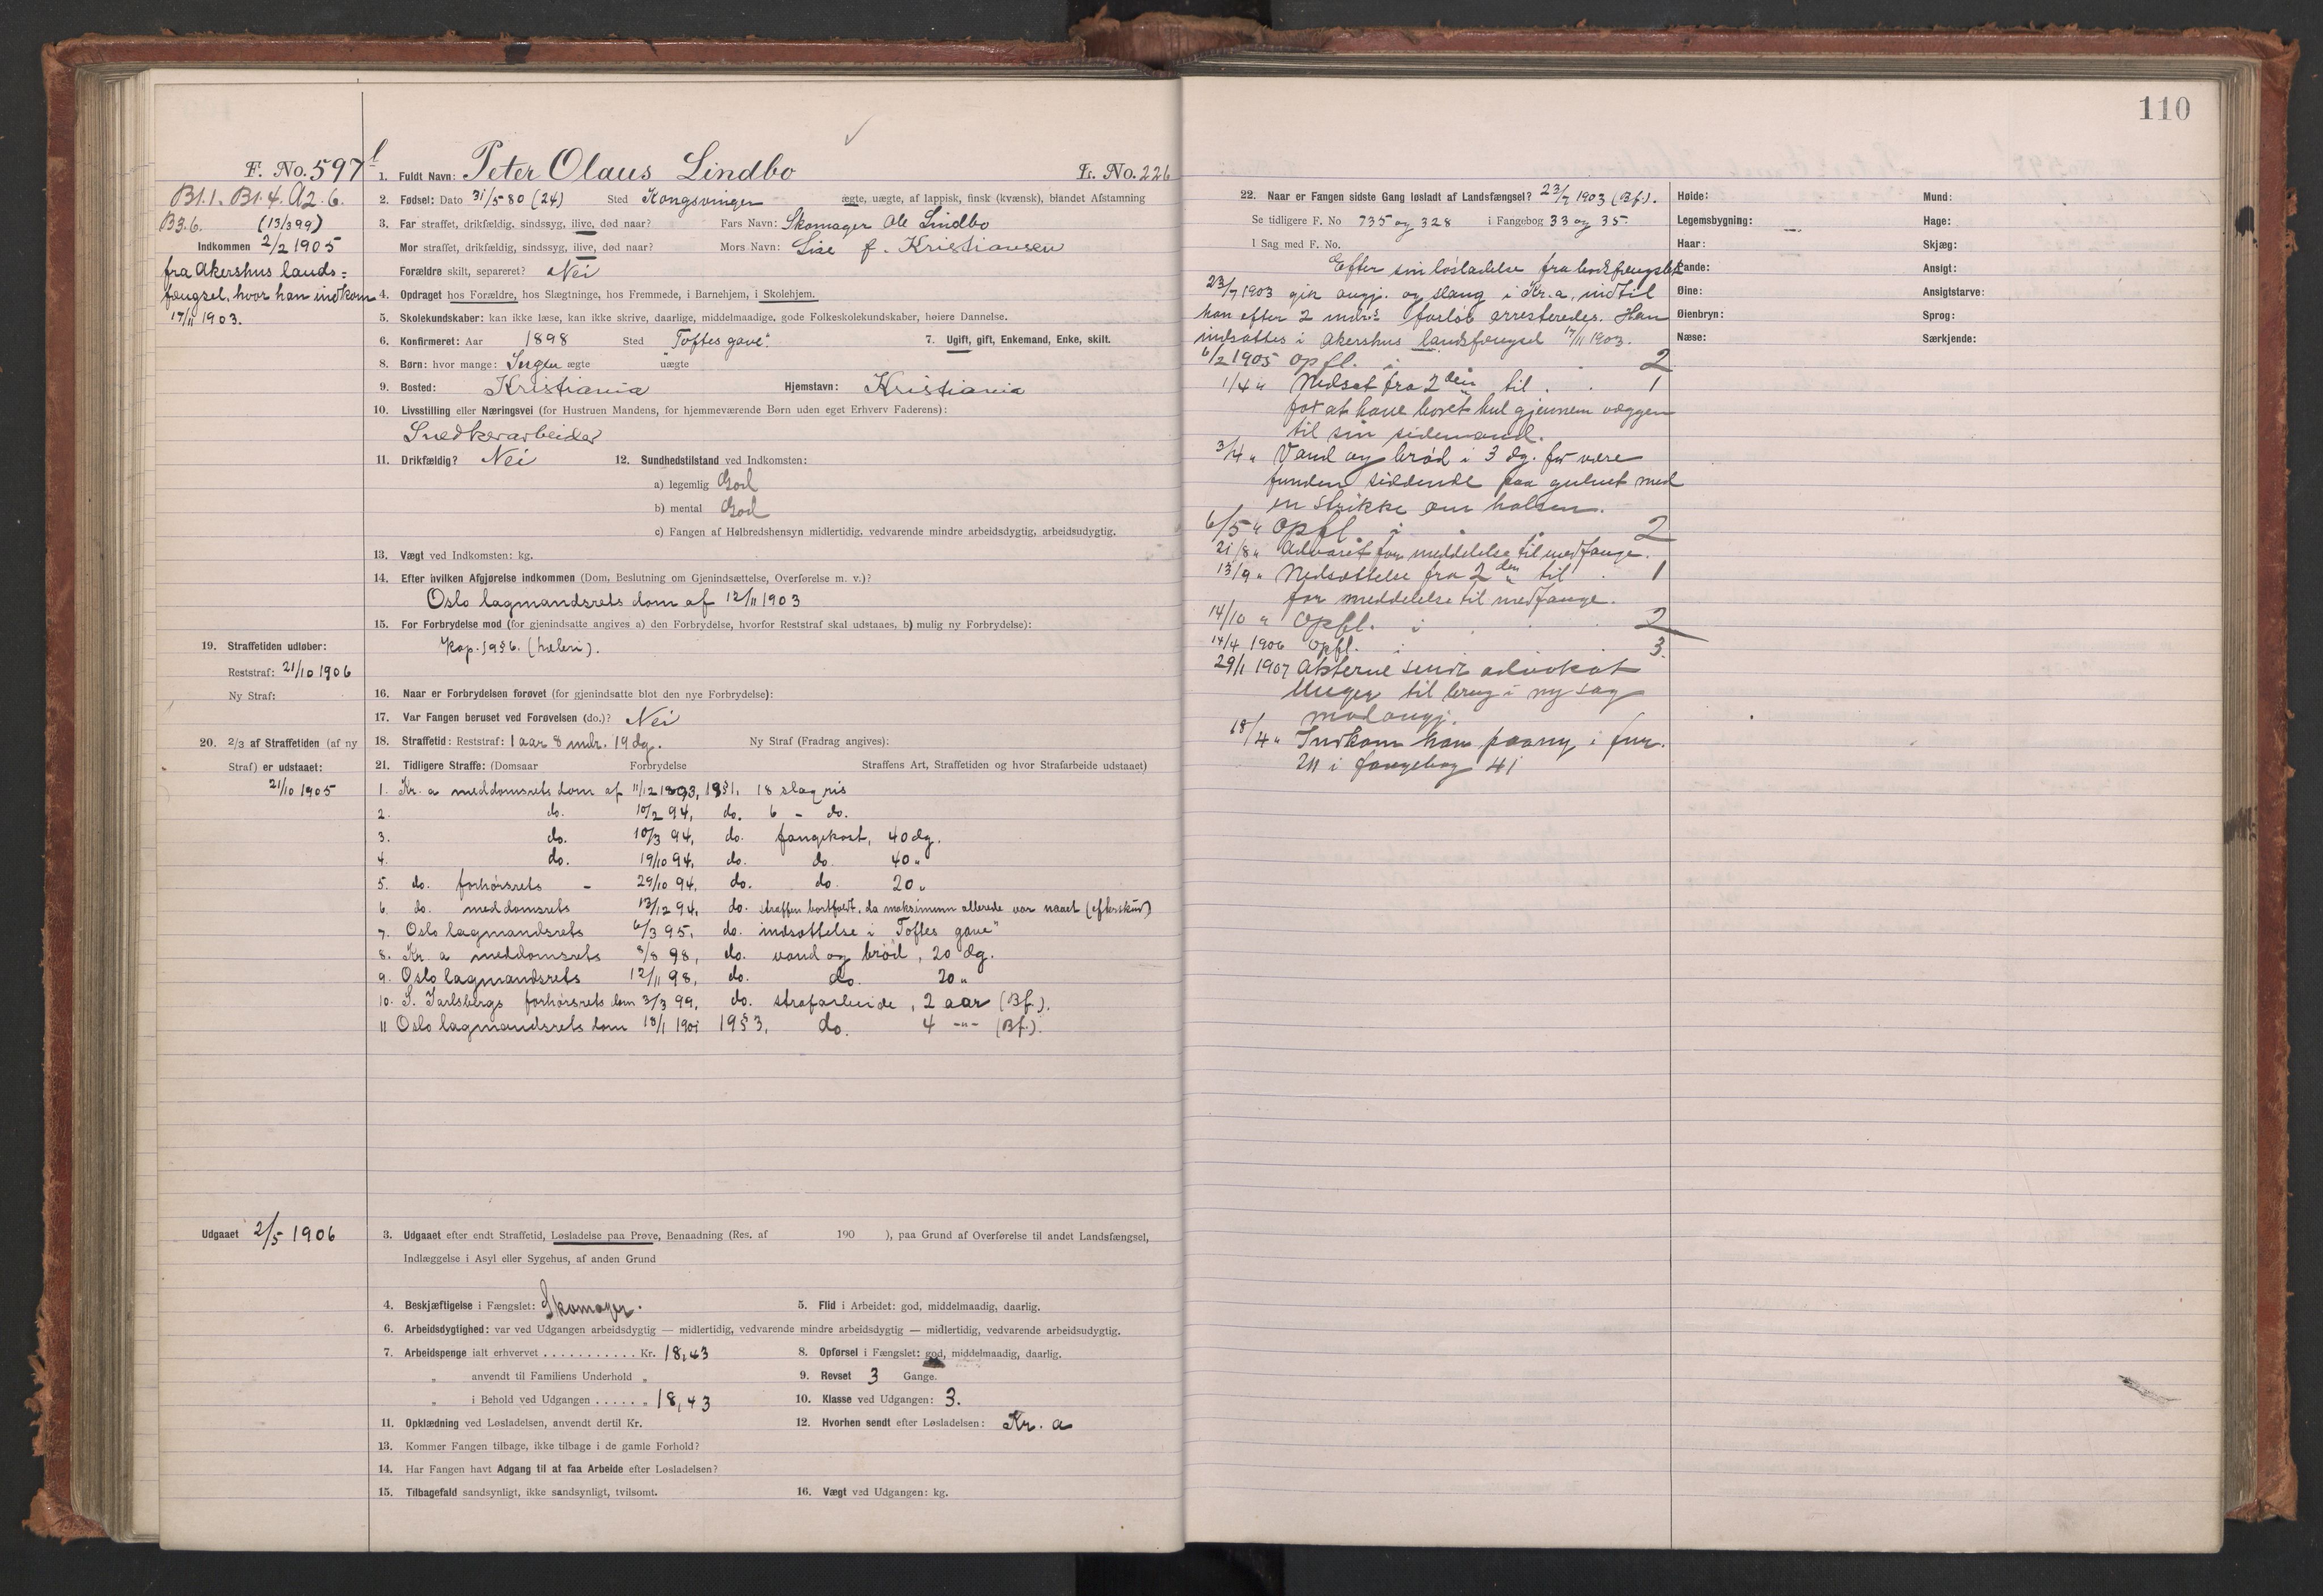 110
F. No. 597
1. Fuldt Navn: Peter Olaus Lindbo
Fr. No. 226
B1.1. B1.4. A2.6.
B3.6. (13/3 99)
Indkommen 2/2 1905
fra Akershus lands=
fængsel, hvor han indkom
17/11 1903.
2. Fødsel: Dato 31/5 80 (24) Sted Kongsvinger ægte, uægte, af lappisk, finsk (kvænsk), blandet Afstamning
3. Far straffet, drikfældig, sindssyg, ilive, død naar? Fars Navn: Skomager Ole Lindbo
Mor straffet, drikfældig, sindssyg, ilive, død naar? Mors Navn: Lise f. Kristiansen
Forældre skilt, separeret? Nei
4. Opdraget hos Forældre, hos Slægtninge, hos Fremmede, i Barnehjem, i Skolehjem.
5. Skolekundskaber: kan ikke læse, kan ikke skrive, daarlige, middelmaadige, gode Folkeskolekundskaber, høiere Dannelse.
6. Konfirmeret: Aar 1898 Sted "Toftes gave". 7. Ugift, gift, Enkemand, Enke, skilt.
8. Børn: hvor mange: Ingen ægte uægte
9. Bosted: Kristiania Hjemstavn: Kristiania
10. Livsstilling eller Næringsvei (for Hustruen Mandens, for hjemmeværende Børn uden eget Erhverv Faderens):
Snedkerarbeider
11. Drikfældig? Nei 12. Sundhedstilstand ved Indkomsten:
a) legemlig God
b) mental God
c) Fangen af Helbredshensyn midlertidig, vedvarende mindre arbeidsdygtig, arbeidsudygtig.
13. Vægt ved Indkomsten: kg.
14. Efter hvilken Afgjørelse indkommen (Dom, Beslutning om Gjenindsættelse, Overførelse m. v.)?
Oslo lagmandsrets dom af 12/11 1903
15. For Forbrydelse mod (for gjenindsatte angives a) den Forbrydelse, hvorfor Reststraf skal udstaaes, b) mulig ny Forbrydelse):
Kap. 19 § 6. (hæleri).
19. Straffetiden udløber:
Reststraf: 21/10 1906
Ny Straf:
16. Naar er Forbrydelsen forøvet (for gjenindsatte blot den nye Forbrydelse):
17. Var Fangen beruset ved Forøvelsen (do.)? Nei
20. 2/3 af Straffetiden (af ny
Straf) er udstaaet:
21/10 1905
18. Straffetid: Reststraf: 1 aar 8 mdr. 19 dg. Ny Straf (Fradrag angives):
21. Tidligere Straffe: (Domsaar Forbrydelse Straffens Art, Straffetiden og hvor Strafarbeide udstaaet)
1. Kr. a meddomsrets dom af 11/12 1893, 19§1, 18 slag ris
2. do. 10/2 94, do. 6 - do.
3. do. 10/3 94, do. fangekost, 40 dg.
4. do. 19/10 94, do. do. 40 "
5. do. forhørsrets - 29/10 94, do. do. 20 "
6. do. meddomsrets 13/12 94, do. straffen bortfaldt, da maksimum allerede var naaet (efterskud)
7. Oslo lagmandsrets 6/3 95, do. indsættelse i "Toftes gave"
8. Kr. a meddomsrets 3/8 98, do. vand og brød, 20 dg.
9. Oslo lagmandsrets 12/11 98, do. do. 20 "
10. S. Jarlsbergs forhørsrets dom 3/3 99, do. strafarbeide, 2 aar (Bf.).
11 Oslo lagmandsrets dom 18/1 1901 19§3, do. 4 -"- (Bf.).
Udgaaet 2/5 1906
3. Udgaaet efter endt Straffetid, Løsladelse paa Prøve, Benaadning (Res. af 190 ), paa Grund af Overførelse til andet Landsfængsel,
Indlæggelse i Asyl eller Sygehus, af anden Grund
4. Beskjæftigelse i Fængslet: Skomager. 5. Flid i Arbeidet: god, middelmaadig, daarlig.
6. Arbeidsdygtighed: var ved Udgangen arbeidsdygtig — midlertidig, vedvarende mindre arbeidsdygtig — midlertidig, vedvarende arbeidsudygtig.
7. Arbeidspenge ialt erhvervet . . . . . . . . . . . Kr. 18,43 8. Opførsel i Fængslet: god, middelmaadig, daarlig.
" anvendt til Familiens Underhold " 9. Revset 3 Gange.
" i Behold ved Udgangen . . . . . " 18,43 10. Klasse ved Udgangen: 3.
11. Opklædning ved Løsladelsen, anvendt dertil Kr. 12. Hvorhen sendt efter Løsladelsen: Kr. a
13. Kommer Fangen tilbage, ikke tilbage i de gamle Forhold?
14. Har Fangen havt Adgang til at faa Arbeide efter Løsladelsen?
15. Tilbagefald sandsynligt, ikke sandsynligt, tvilsomt. 16. Vægt ved Udgangen: kg.
22. Naar er Fangen sidste Gang løsladt af Landsfængsel? 23/7 1903 (Bf.).
Se tidligere F. No 735 og 328 i Fangebog 33 og 35
I Sag med F. No.
Efter sin løsladelse fra bodsfængslet
23/7 1903 gik angj. og slang i Kr.a, indtil
han efter 2 mdr.s forløb arresteredes. Han
indsattes i Akershus landsfængsel 17/11 1903.
6/2 1905 Opfl. i . 2
1/4 " Nedsat fra 2den til . . 1
for at have boret hul gjennem væggen
til sin sidemand.
3/4 " Vand og brød i 3 dg. for være
funden siddende paa gulvet med
en strikke om halsen.
6/5 " Opfl. i . . 2
21/8 " Advaret for meddelelse til medfange.
13/9 " Nedsættelse fra 2den til . 1
for meddelelse til medfange.
14/10 " Opfl. i . . . 2
14/4 1906 Opfl. i 3.
29/1 1907 Akterne sendt advokat
Unger til brug i ny sag
mod angj.
18/4 " Indkom han paany i fnr.
211 i fangebog 41
Høide: Mund:
Legemsbygning: Hage:
Haar: Skjæg:
Pande: Ansigt:
Øine: Ansigtsfarve:
Øienbryn: Sprog:
Næse: Særkjende: